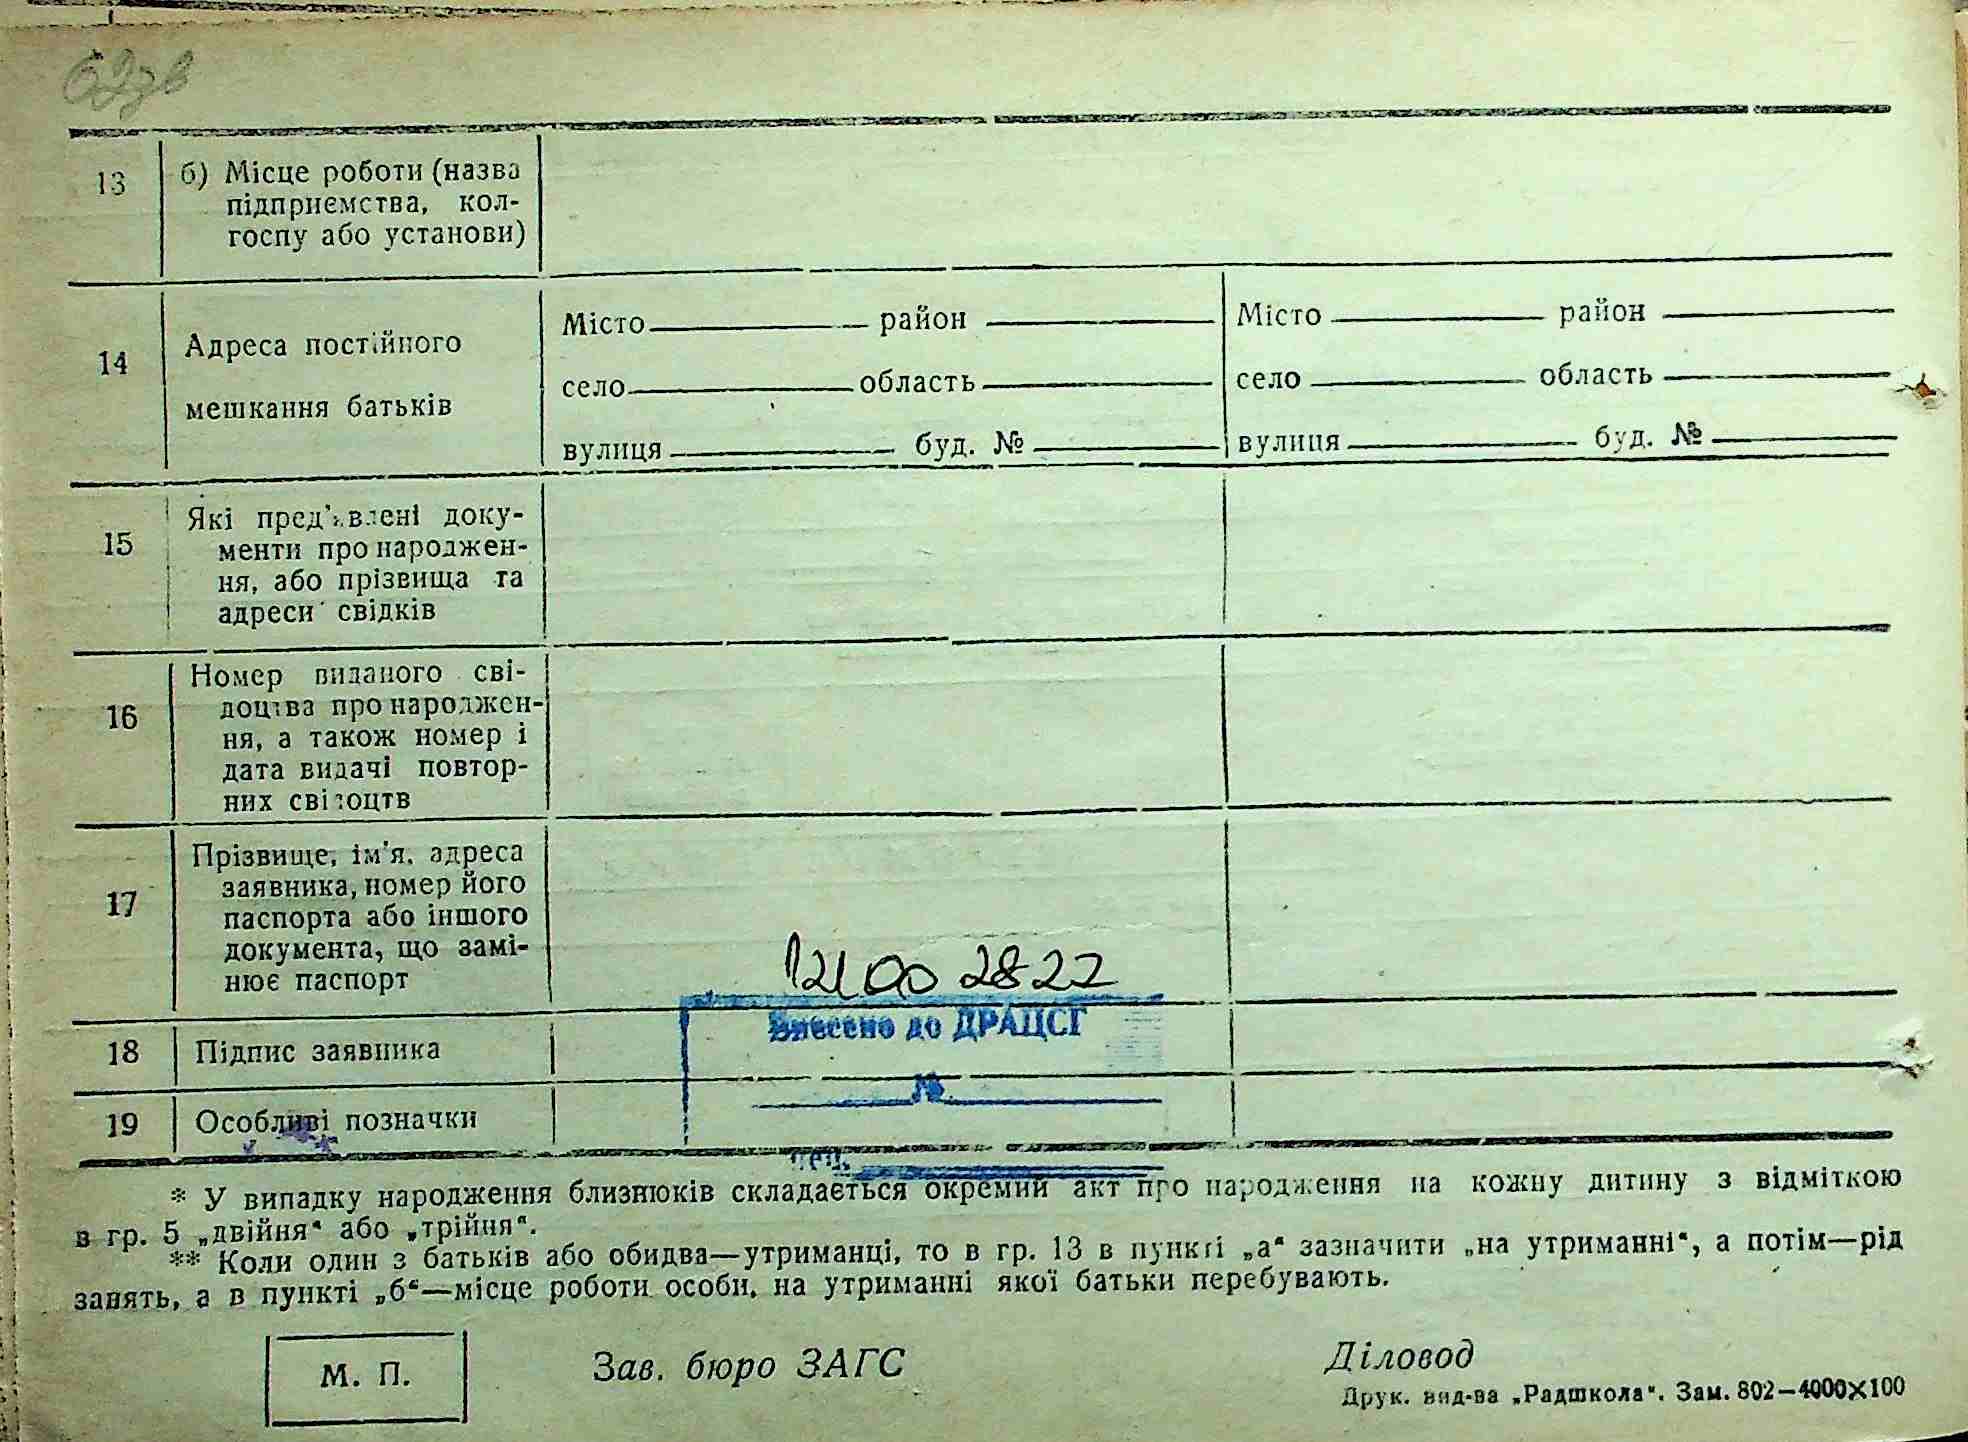 62зв
13
б) Місце роботи (назва
підприємства, кол-
госпу або установи)
14
Адреса постійного
мешкання батьків
Місто район
село область
вулиця буд. №
Місто район
село область
вулиця буд. №
15
Які пред'явлені доку-
менти про народжен-
ня, або прізвища та
адреси свідків
16
Номер виданого сві-
доцтва про народжен-
ня, а також номер і
дата видачі повтор-
них свідоцтв
17
Прізвище, ім'я, адреса
заявника, номер його
паспорта або іншого
документа, що замі-
нює паспорт
12100 2822
Внесено до ДРАЦСГ
№
18
Підпис заявника
19
Особливі позначки
* У випадку народження близнюків складається окремий акт про народження на кожну дитину з відміткою
в гр. 5 „двійня“ або „трійня“.
** Коли один з батьків або обидва—утриманці, то в гр. 13 в пункті „а“ зазначити „на утриманні“, а потім—рід
занять, а в пункті „б“—місце роботи особи, на утриманні якої батьки перебувають.
М. П.
Зав. бюро ЗАГС
Діловод
Друк. вид-ва „Радшкола“. Зам. 802—4000×100